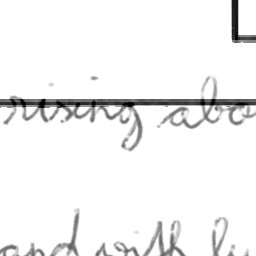 rising abo
and with lu